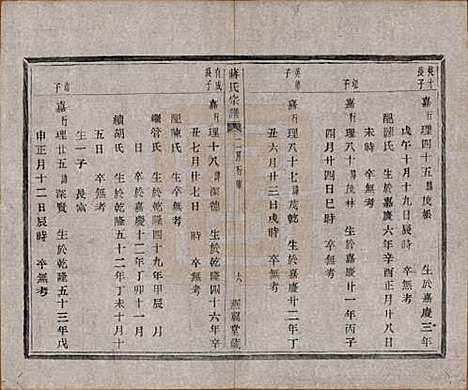 長子
嘉行理四十五諱茂 生於嘉慶三年
戊午十月十九日戌時 卒無考
配諸氏 生於嘉慶六年辛酉正月廿八日
未時 卒無考
子
嘉行理八十諱茂林 生於嘉慶廿一年丙子
四月廿四日巳時 卒無考
子
嘉行理八十七諱茂乾 生於嘉慶廿二年丁
丑六月廿三日戌時 卒無考
蔣氏宗譜 行 六 堂藏
有成長子
嘉行理十八諱深德 生於乾隆四十六年辛
丑七月廿七日時 卒無考
配陳氏 生卒無考
繼管氏 生於乾隆四十九年甲辰 月
日時 卒於嘉慶十二年丁卯十一月
續胡氏 生於乾隆五十二年丁未十月十
五日 卒無考
生一子 長富
子
嘉行理廿五諱深賢 生於乾隆五十三年戊
申正月十二日辰時 卒無考